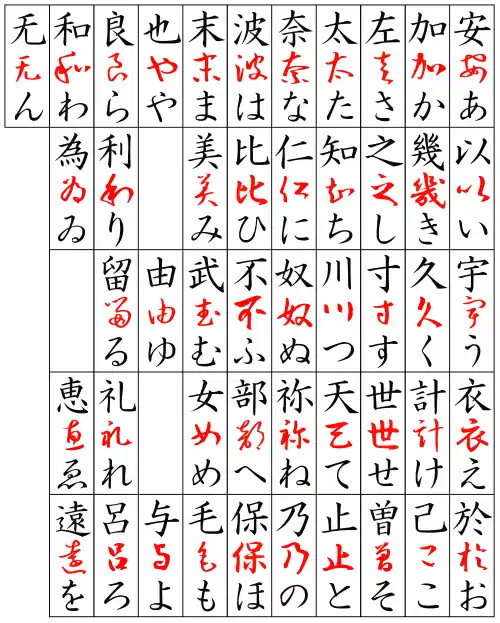 安安あ
以以い
宇宇う
衣衣え
於於お
加加か
幾幾き
久久く
計計け
己己こ
左左さ
之之し
寸寸す
世世せ
曽曽そ
太太た
知知ち
川川つ
天天て
止止と
奈奈な
仁仁に
奴奴ぬ
祢祢ね
乃乃の
波波は
比比ひ
不不ふ
部部へ
保保ほ
末末ま
美美み
武武む
女女め
毛毛も
也也や
由由ゆ
与与よ
良良ら
利利り
留留る
礼礼れ
呂呂ろ
和和わ
為為ゐ
恵恵ゑ
遠遠を
无无ん